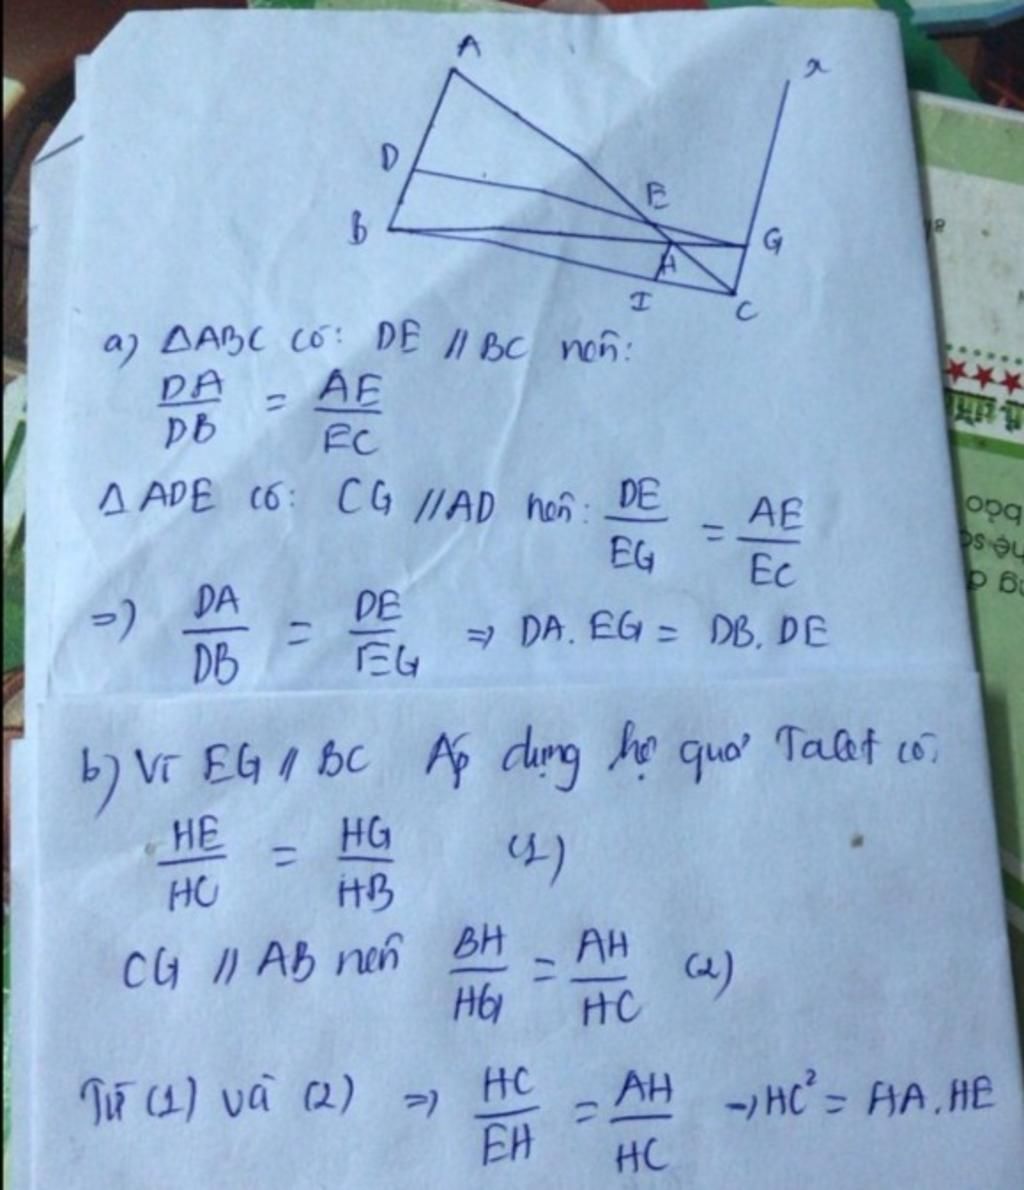 A
x
D
E
B
G
H
I
C
a) △ABC có: DE // BC nên:
DA/DB = AE/EC
△ADE có: CG // AD nên: DE/EG = AE/EC
=) DA/DB = DE/EG => DA.EG = DB.DE
b) Vì EG // BC Áp dụng hệ quả Talet có:
HE/HC = HG/HB (1)
CG // AB nên BH/HG = AH/HC (2)
Từ (1) và (2) => HC/EH = AH/HC → HC² = HA.HE